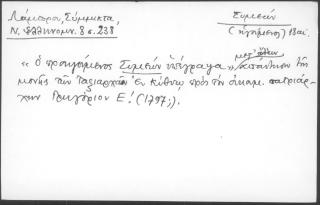 Λάμπρου, Σύμμικτα,
Ν. Ἑλληνομν. 8 σ. 238
Συμεών
(ἡγούμενος) 18 αἰ.
« ὁ προηγούμενος Συμεὼν ὑπέγραψα » ἀπάντησιν τῆς
μονῆς τῶν Ταξιαρχῶν ἐν Κύθνῳ πρὸς τὸν οἰκουμ. πατριάρ-
χην Γρηγόριον Ε! (1797;).